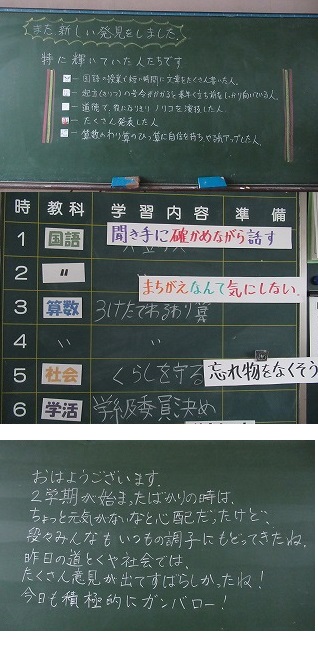 また、新しい発見をしました
特に輝いていた人たちです
国語の授業で短い時間に文章をたくさん書いた人。
起立(きりつ)の号令がかかると素早く立ち前をしっかり向いている人。
道徳で、役になりきりノリコを演技した人。
たくさん発表した人
算数のわり算のひっ算に自信を持ちやる気アップした人。
時 教科 学習内容 準備
1 国語 聞き手に確かめながら話す
2 〃
まちがえなんて気にしない
3 算数 3けたであるわり算
4 〃 〃
5 社会 くらしを守る 忘れ物をなくそう
6 学活 学級委員決め
おはようございます。
2学期が始まったばかりの時は、
ちょっと元気がないなと心配だったけど、
段々みんなもいつもの調子にもどってきたね。
昨日の道とくや社会では、
たくさん意見が出てすばらしかったね!
今日も積極的にガンバロー!